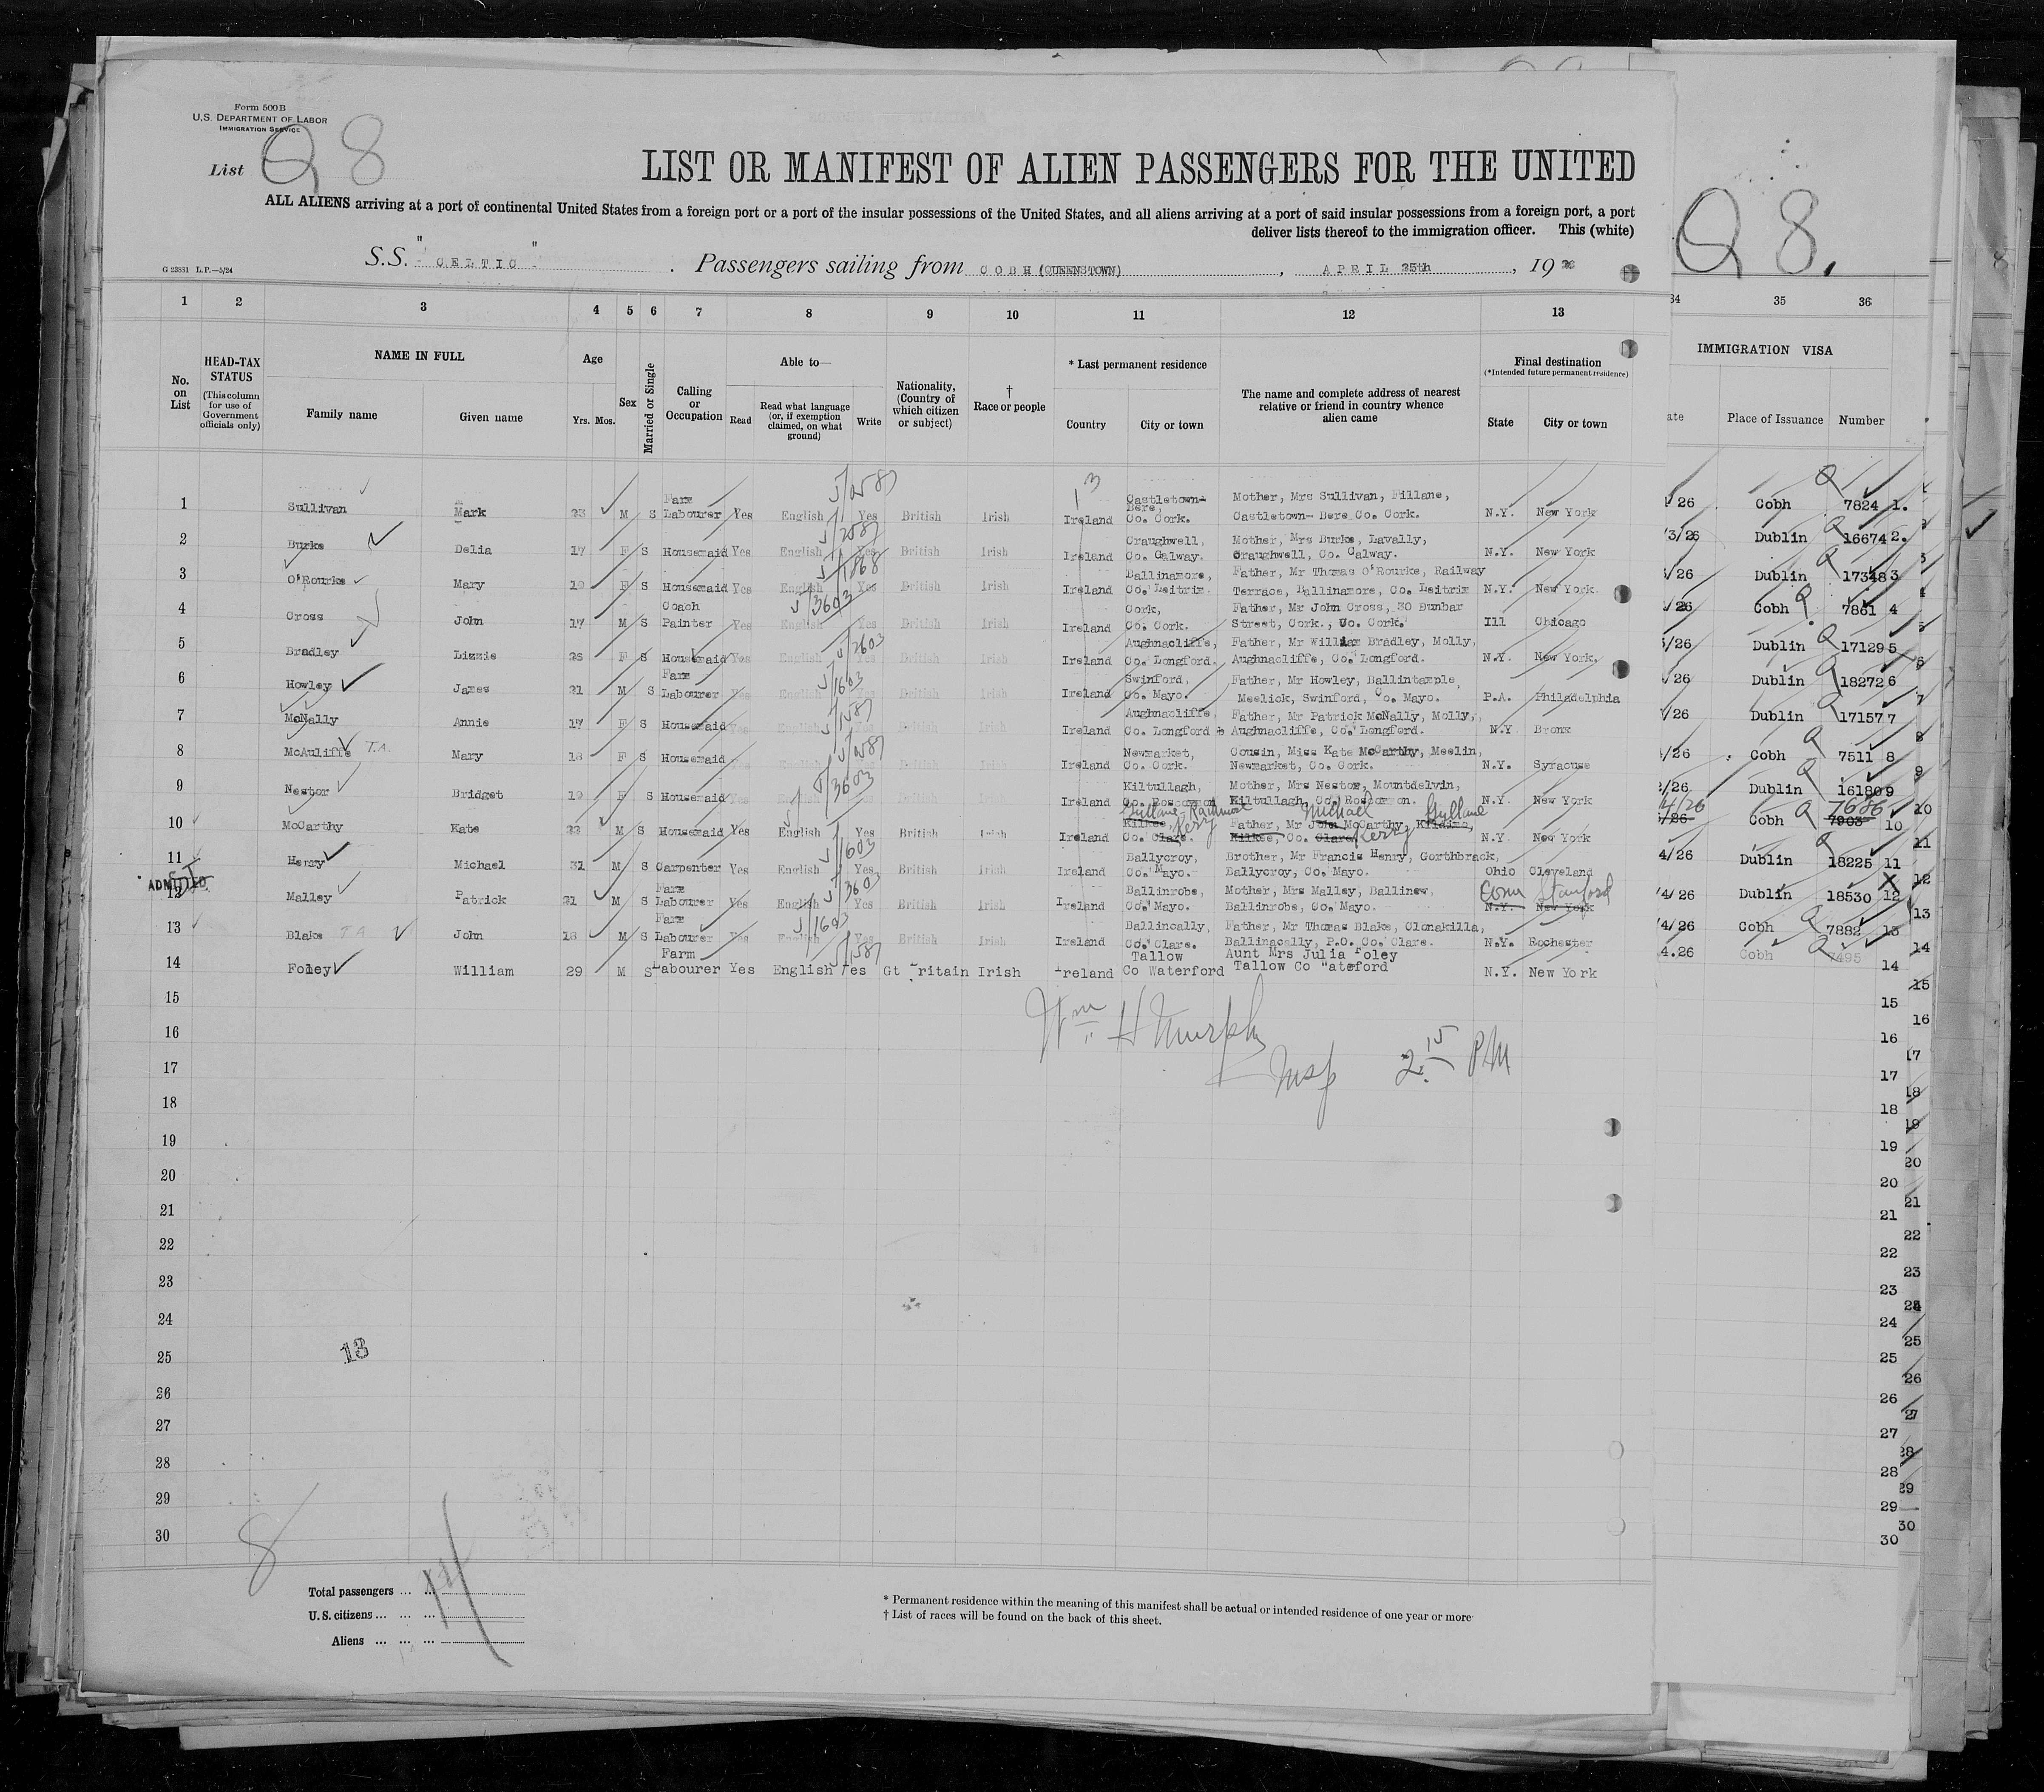 Form 500B
U.S. DEPARTMENT OF LABOR
IMMIGRATION SERVICE
List Q 8
LIST OR MANIFEST OF ALIEN PASSENGERS FOR THE UNITED
ALL ALIENS arriving at a port of continental United States from a foreign port or a port of the insular possessions of the United States, and all aliens arriving at a port of said insular possessions from a foreign port, a port
deliver lists thereof to the immigration officer. This (white)
S.S. "CELTIC" . Passengers sailing from COBH (QUEENSTOWN) , APRIL 25th , 1926
G 23881 L.P.—5/24
Q 8.
1 2 3 4 5 6 7 8 9 10 11 12 13 34 35 36
No. on List
HEAD-TAX STATUS (This column for use of Government officials only)
NAME IN FULL
Family name Given name
Age
Yrs. Mos.
Sex
Married or Single
Calling or Occupation
Able to—
Read Read what language (or, if exemption claimed, on what ground) Write
Nationality, (Country of which citizen or subject)
† Race or people
* Last permanent residence
Country City or town
The name and complete address of nearest relative or friend in country whence alien came
Final destination
(*Intended future permanent residence)
State City or town
IMMIGRATION VISA
ate Place of Issuance Number
1 Sullivan Mark 23 M S Farm Labourer Yes English Yes British Irish Ireland Castletown-Bere, Co. Cork. Mother, Mrs Sullivan, Fillane, Castletown-Bere Co. Cork. N.Y. New York /26 Cobh 7824 1.
2 Burke Delia 17 F S Housemaid Yes English Yes British Irish Ireland Craughwell, Co. Galway. Mother, Mrs Burke, Lavally, Craughwell, Co. Galway. N.Y. New York /3/26 Dublin 16674 2.
3 O'Rourke Mary 19 F S Housemaid Yes English Yes British Irish Ireland Ballinamore, Co. Leitrim Father, Mr Thomas O'Rourke, Railway Terrace, Ballinamore, Co. Leitrim N.Y. New York. /26 Dublin 17348 3
4 Cross John 17 M S Coach Painter Yes English Yes British Irish Ireland Cork, Co. Cork. Father, Mr John Cross, 30 Dunbar Street, Cork., Co. Cork. Ill Chicago /26 Cobh 7861 4
5 Bradley Lizzie 26 F S Housemaid Yes English Yes British Irish Ireland Aughnacliffe, Co. Longford. Father, Mr William Bradley, Molly, Aughnacliffe, Co. Longford. N.Y. New York. /26 Dublin 17129 5
6 Howley James 21 M S Farm Labourer Yes English Yes British Irish Ireland Swinford, Co. Mayo. Father, Mr Howley, Ballintample, Meelick, Swinford, Co. Mayo. P.A. Philadelphia /26 Dublin 18272 6
7 McNally Annie 17 F S Housemaid Yes English Yes British Irish Ireland Aughnacliffe, Co. Longford Father, Mr Patrick McNally, Molly, Aughnacliffe, Co. Longford. N.Y Bronx /26 Dublin 17157 7
8 McAuliffe T.A. Mary 18 F S Housemaid Irish Ireland Newmarket, Co. Cork. Cousin, Miss Kate McCarthy, Meelin, Newmarket, Co. Cork. N.Y. Syracuse /26 Cobh 7511 8
9 Nestor Bridget 19 F S Housemaid Yes English Yes British Irish Ireland Kiltullagh, Co. Roscommon Mother, Mrs Nestor, Mountdelvin, Kiltullagh, Co. Roscommon. N.Y. New York /26 Dublin 16180 9
10 McCarthy Kate 22 M S Housemaid Yes English Yes British Irish Ireland Kilkee, Co. Clare. Kerry Father, Mr John McCarthy, Michael Kilkee, Co. Clare Kerry N.Y. New York 4/26 Cobh 7903 7686 10
11 Henry Michael 31 M S Carpenter Yes English Yes British Irish Ireland Ballycroy, Co. Mayo. Brother, Mr Francis Henry, Gorthbrack, Ballycroy, Co. Mayo. Ohio Cleveland 4/26 Dublin 18225 11
ADMITTED
12 Malley Patrick 21 M S Farm Labourer Yes English Yes British Irish Ireland Ballinrobe, Co. Mayo. Mother, Mrs Malley, Ballinew, Ballinrobe, Co. Mayo. N.Y. New York Conn Stanford /4/26 Dublin 18530 12
13 Blake T A John 18 M S Farm Labourer Yes English Yes British Irish Ireland Ballincally, Co. Clare. Father, Mr Thomas Blake, Clonakilla, Ballinacally, P.O. Co. Clare. N.Y. Rochester /4/26 Cobh 7882 13
14 Foley William 29 M S Farm Labourer Yes English Yes Gt Britain Irish Ireland Tallow Co Waterford Aunt Mrs Julia Foley Tallow Co Wateford N.Y. New York 4.26 Cobh 7495 14
15
16
17
18
19
20
21
22
23
24
25
26
27
28
29
30
Wm H Murphy
Insp 2.15 PM
13
8
Total passengers ... ...
U.S. citizens ... ... ...
Aliens ... ... ...
* Permanent residence within the meaning of this manifest shall be actual or intended residence of one year or more
† List of races will be found on the back of this sheet.